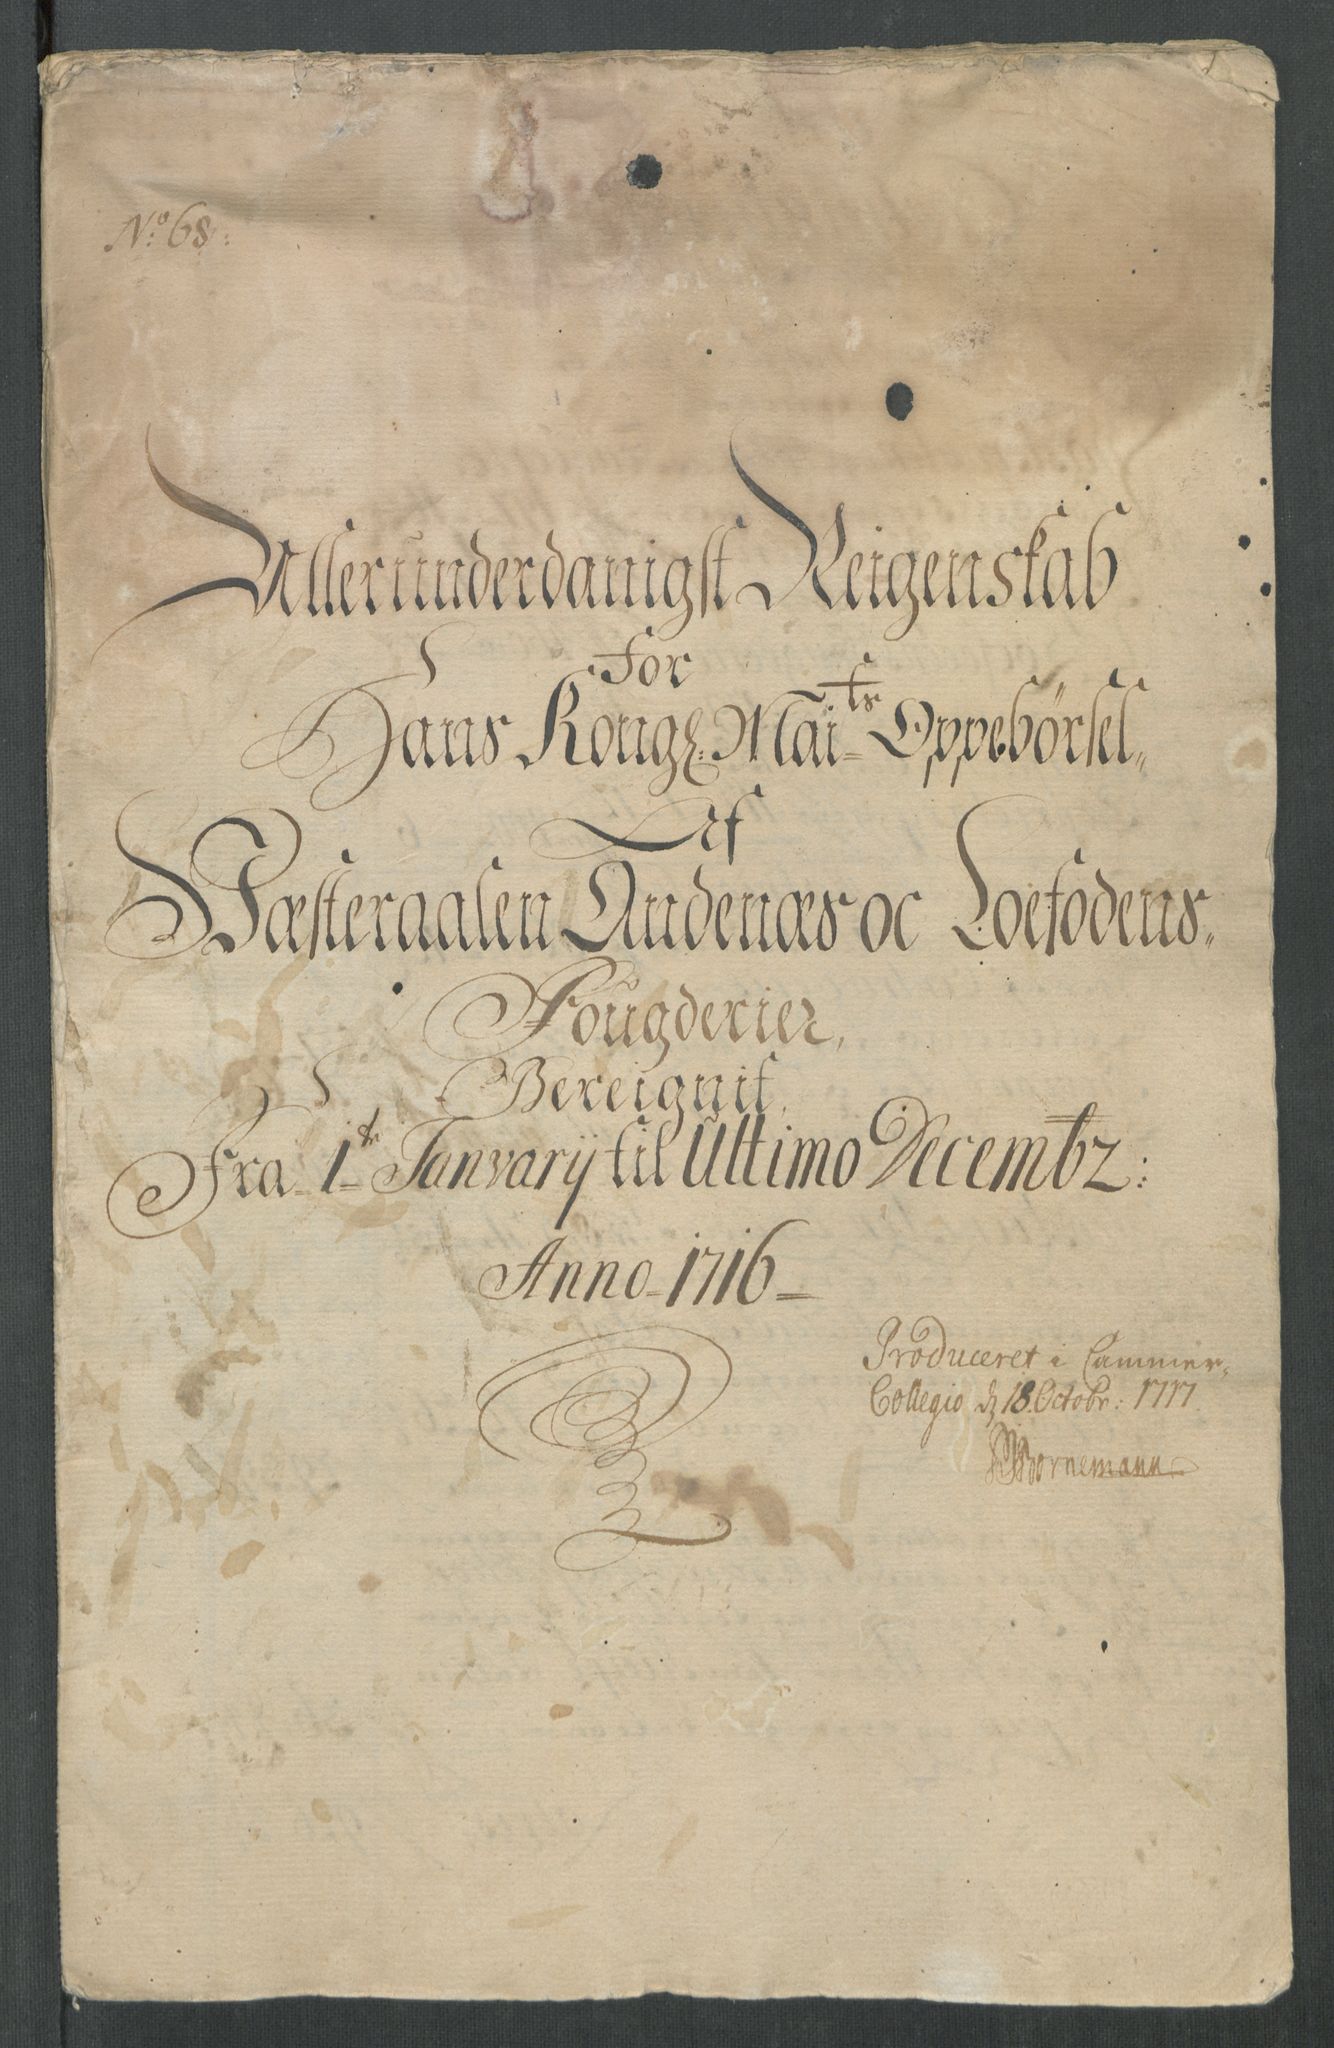 No: 68:
Allerunderdanigst Reigenskab
for
Hans Kongl: Mai:ts Oppebörsel
Af
Wæsteraalen Andenæs oc Loefodens
Fougderier,
Bereignit,
Fra 1te Janvarij til Ultimo Decembr:
Anno 1716
Produceret i Cammer-
Collegio d 18 Octobr: 1717
Bornemann